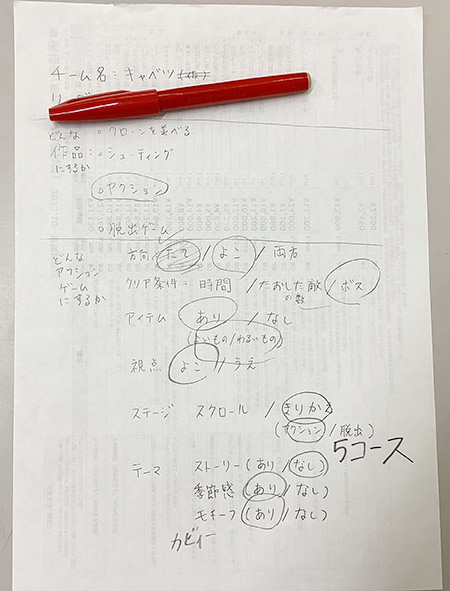 チーム名:キャベツ(仮)
どんな ○クローンを並べる
作品:○シューティング
にするか
○アクション
○脱出ゲーム
どんな 方向:たて/よこ/両方
アクション
ゲーム クリア条件:時間/たおした敵/ボス
にするか の数
アイテム あり/なし
(よいもの/わるいもの)
視点 よこ/うえ
ステージ スクロール/きりかえ
(アクション/脱出)
5コース
テーマ ストーリー(あり/なし)
季節感(あり/なし)
モチーフ(あり/なし)
カビィー